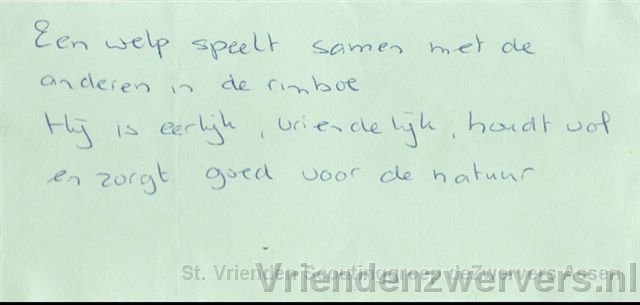 Een welp speelt samen met de
anderen in de rimboe
Hij is eerlijk, vriendelijk, houdt vol
en zorgt goed voor de natuur
St. Vrienden Scoutinggroep deZwervers Assen
Vriendenzwervers.nl